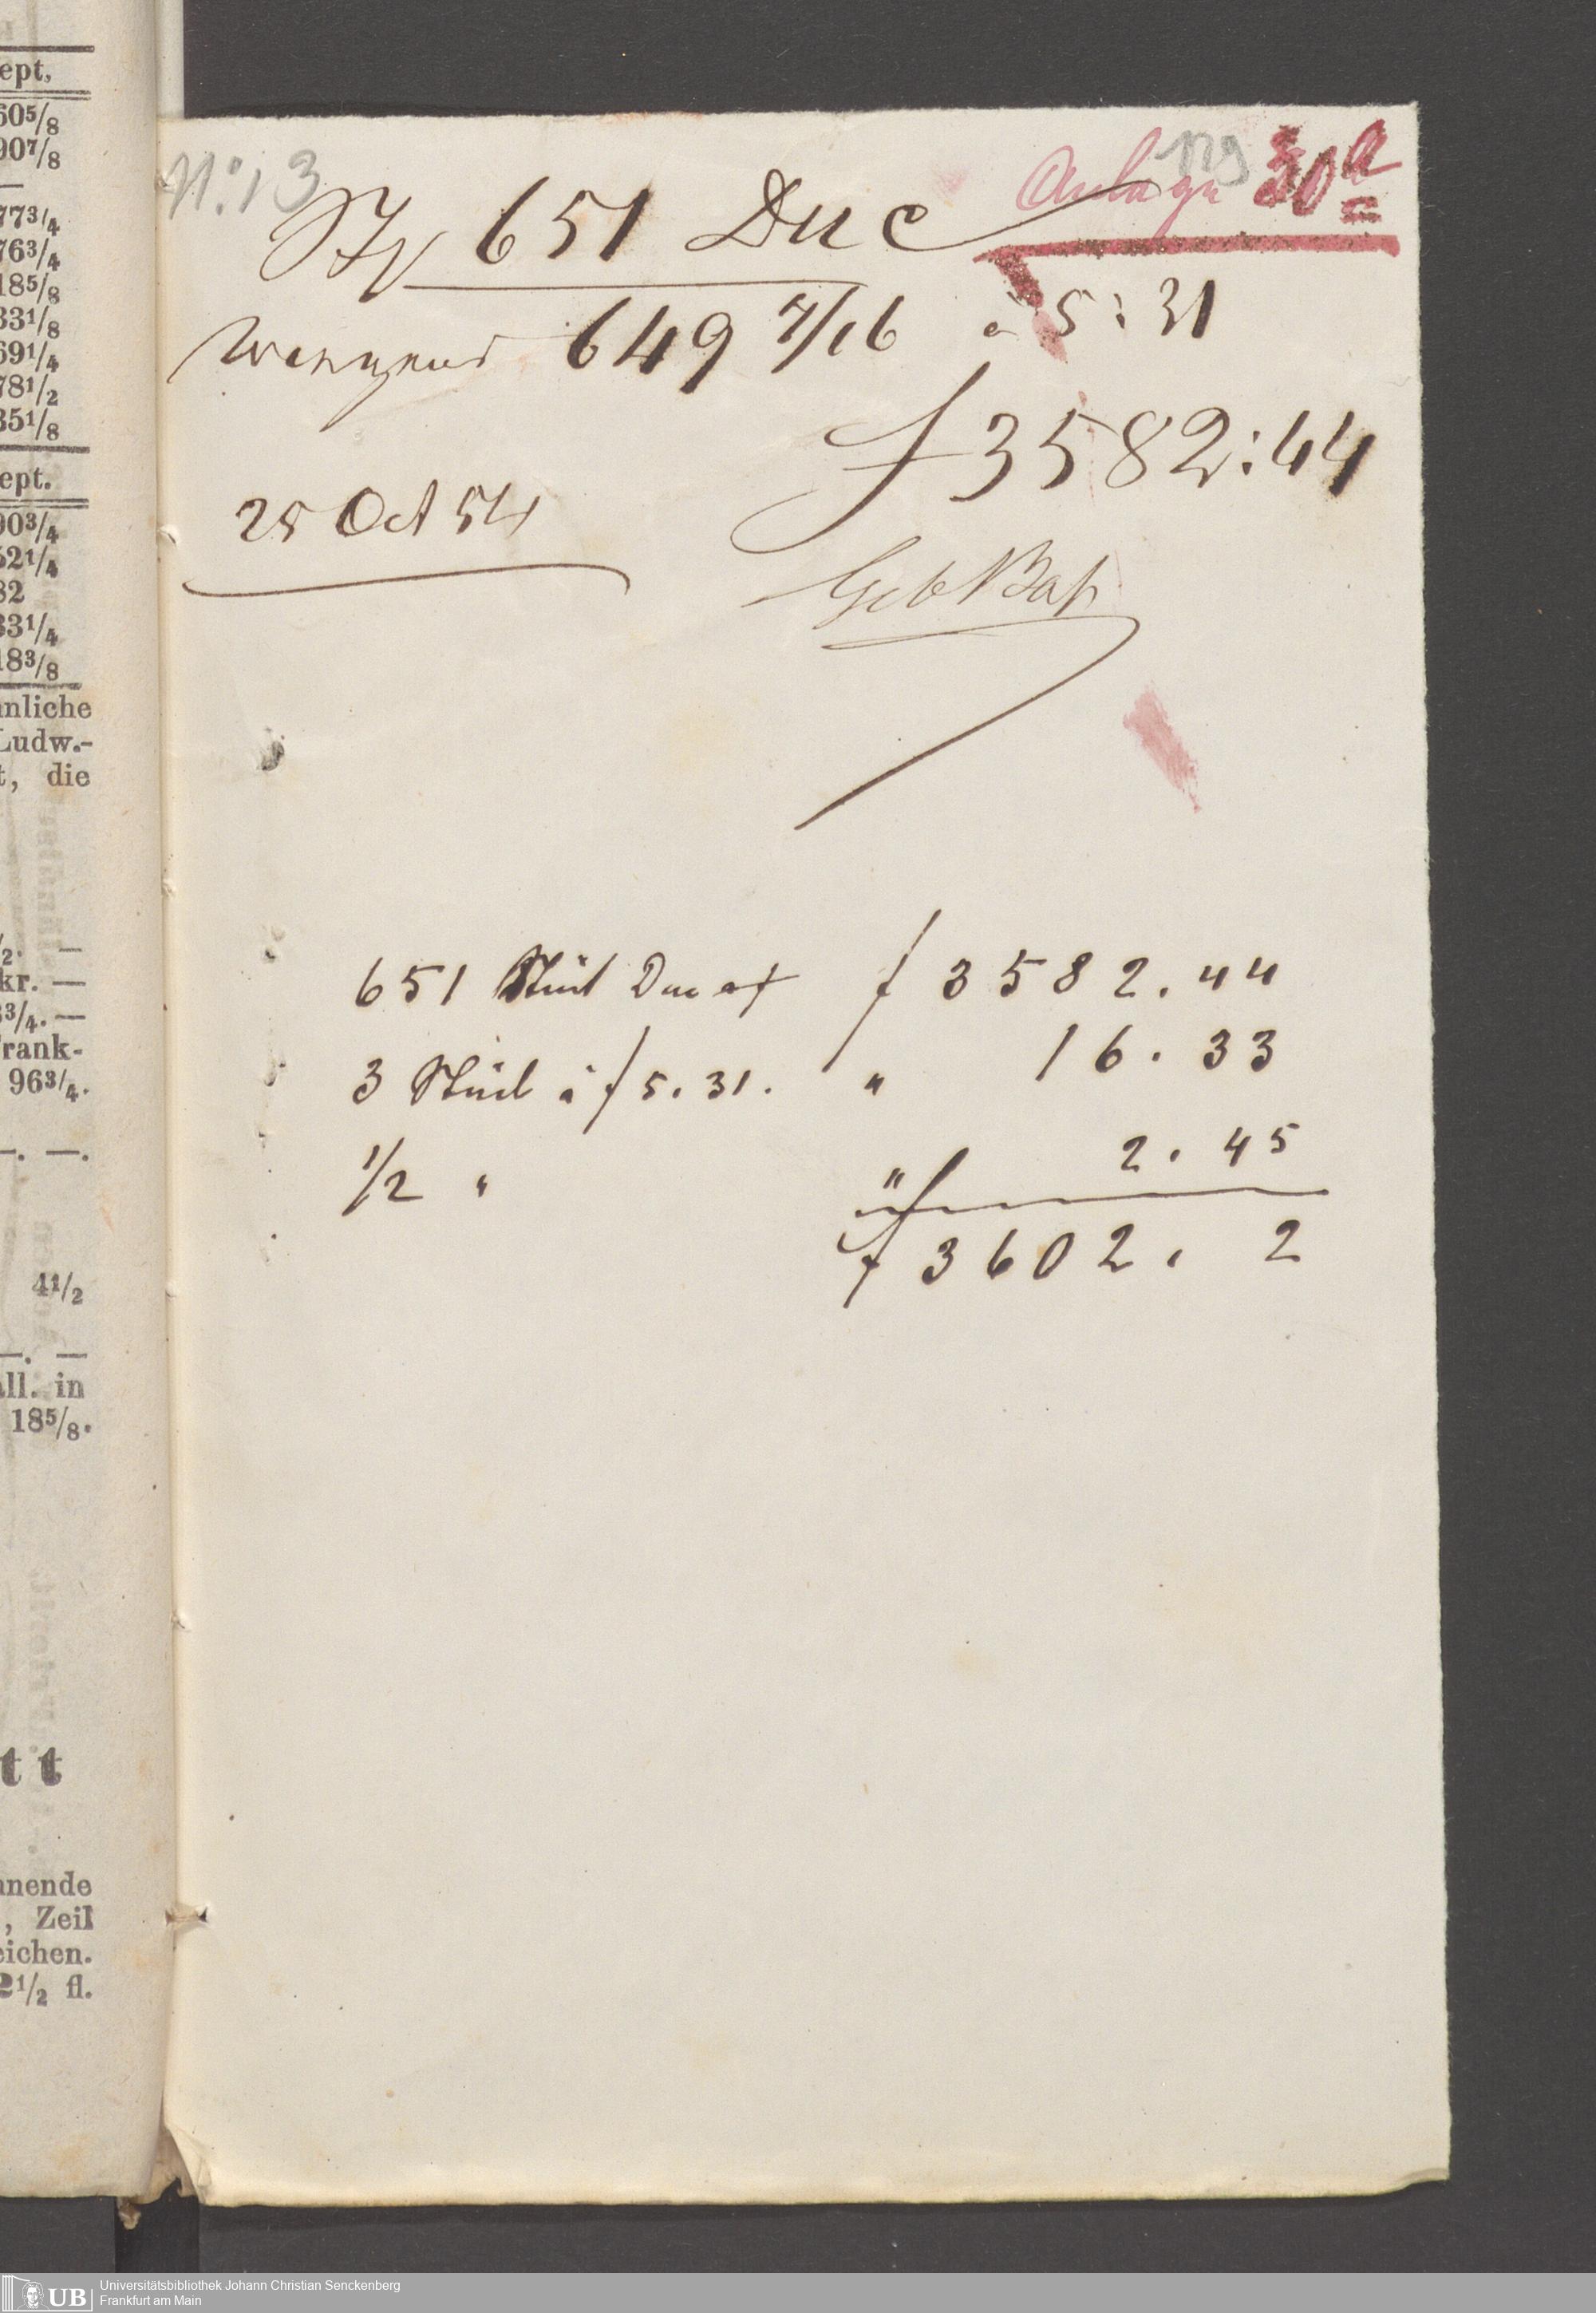 ept.
605/8
907/8
—
773/4
763/4
185/8
331/8
691/4
781/2
351/8
ept.
903/4
521/4
82
331/4
183/8
nnliche
Ludw.-
t, die
/2. —
kr. —
3/4. —
rank-
963/4.
—. —.
41/2
—. —
all. in
185/8.
tt
nnende
, Zeil
eichen.
21/2 fl.
No. 13
129
Anlage 30a
651 Duc
649 7/16 à 5:31
f 3582:44
25 Oct 54
651 Stück Ducat f 3582.44
3 Stück à f 5.31. " 16.33
1/2 " " 2.45
f 3602. 2
UB
Universitätsbibliothek Johann Christian Senckenberg
Frankfurt am Main